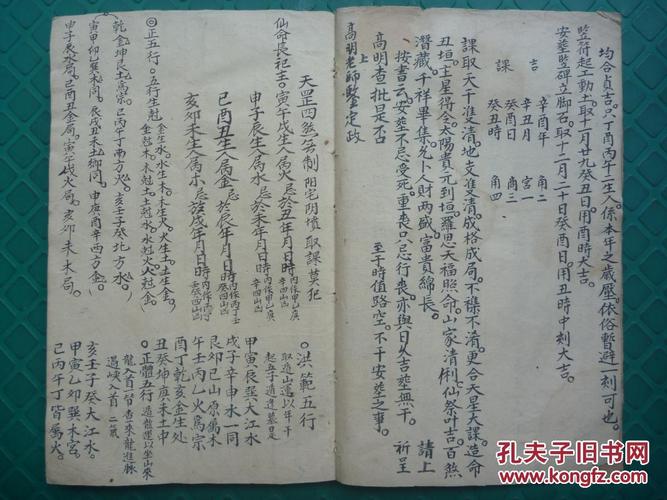 均合貞吉。只丁酉丙午二生人。係本年之歲壓。依俗暫避一刻可也。
竪符起工動土。取十一月廿九癸丑日。用酉時大吉。
安塟竪碑立脚石。取十二月二十日癸酉日。用丑時中刻大吉。
吉 辛酉年 角二
辛丑月 宮一
課 癸酉日 商三
癸丑時 角四
課取天干准清。地支准清。成格成局。不襍不淆。更合天星大課。造命
丑垣。主星得令。太陽貴元到垣。羅恩天福照命。山家清俐。仙祭叶吉。百煞
潛藏。千祥畢集。允卜財兩盛。富貴綿長。 請上
按書云。安塟不忌受死。重喪只忌行喪。亦與日久吉塟無干。 祈呈
高明查批是否 至于時值路空。不干安塟之事。
上
高明老師鑒定政
天罡四煞吉制 陽宅阴墳 取課莫犯
仙命長祀主。寅午戌生人属火。忌於丑年月日時
申子辰生人属水。忌於未年月日時
巳酉丑生人属金。忌於辰年月日時
亥卯未生人属木。忌於戌年月日時
◎正五行。五行生尅
金生水。水生木。木生火。火生土。土生金。
金尅木。木尅土。土尅水。水尅火。火尅金。
乾金坤艮土為宗。巳丙午丁南方火。亥壬子癸北方水。
寅甲卯乙巽木同。辰戌丑未土鄉同。申庚酉辛西方金。
申子辰水局。巳酉丑金局。寅午戌火局。亥卯未木局。
○洪範五行
取造山運以年干
起五子遁遁墓是
甲寅辰巽大江水
戌子辛申水一同
艮卯巳山原属木
午壬丙乙火為宗
酉丁乾亥金生处
丑癸坤庚未土中
○正體五行 遁龍運以坐山來
龍入首
过峽入首 二氣
亥壬子癸大江水。
甲寅乙卯巽木宮。
巳丙午丁皆属火。
孔夫子旧书网